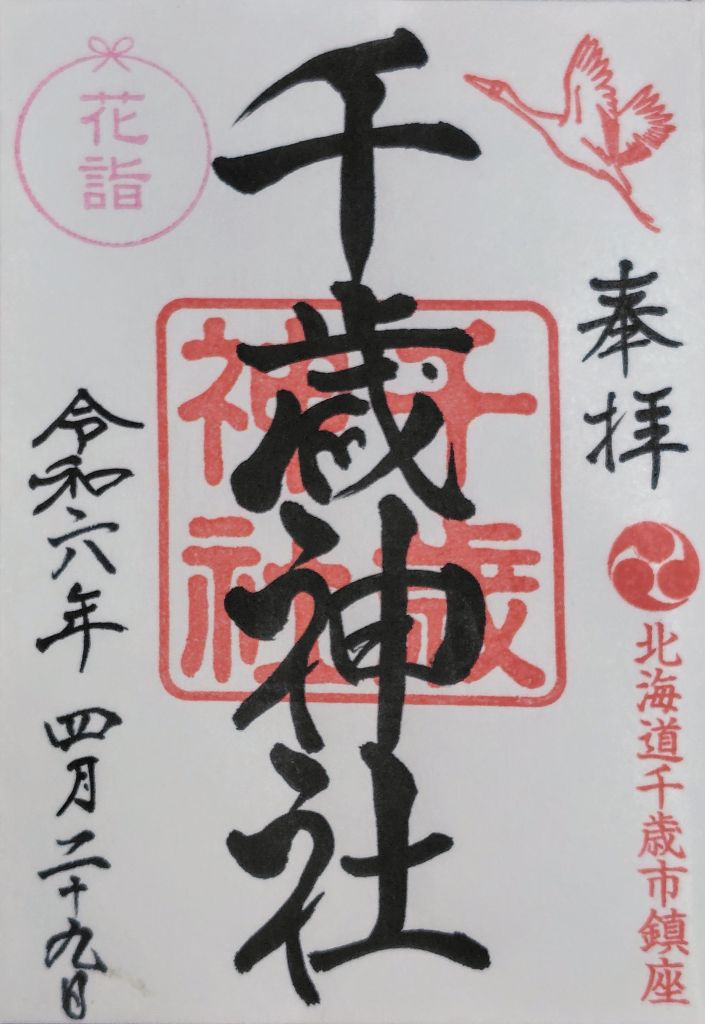 奉拝
北海道千歳市鎮座
千歳神社
千歳
神社
花詣
令和六年 四月二十九日